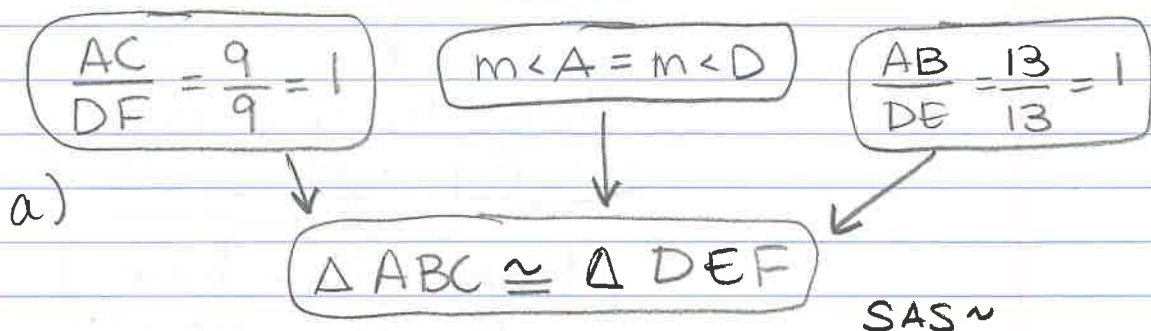 AC/DF = 9/9 = 1
m<A = m<D
AB/DE = 13/13 = 1
a)
△ ABC ≅ △ DEF
SAS ~